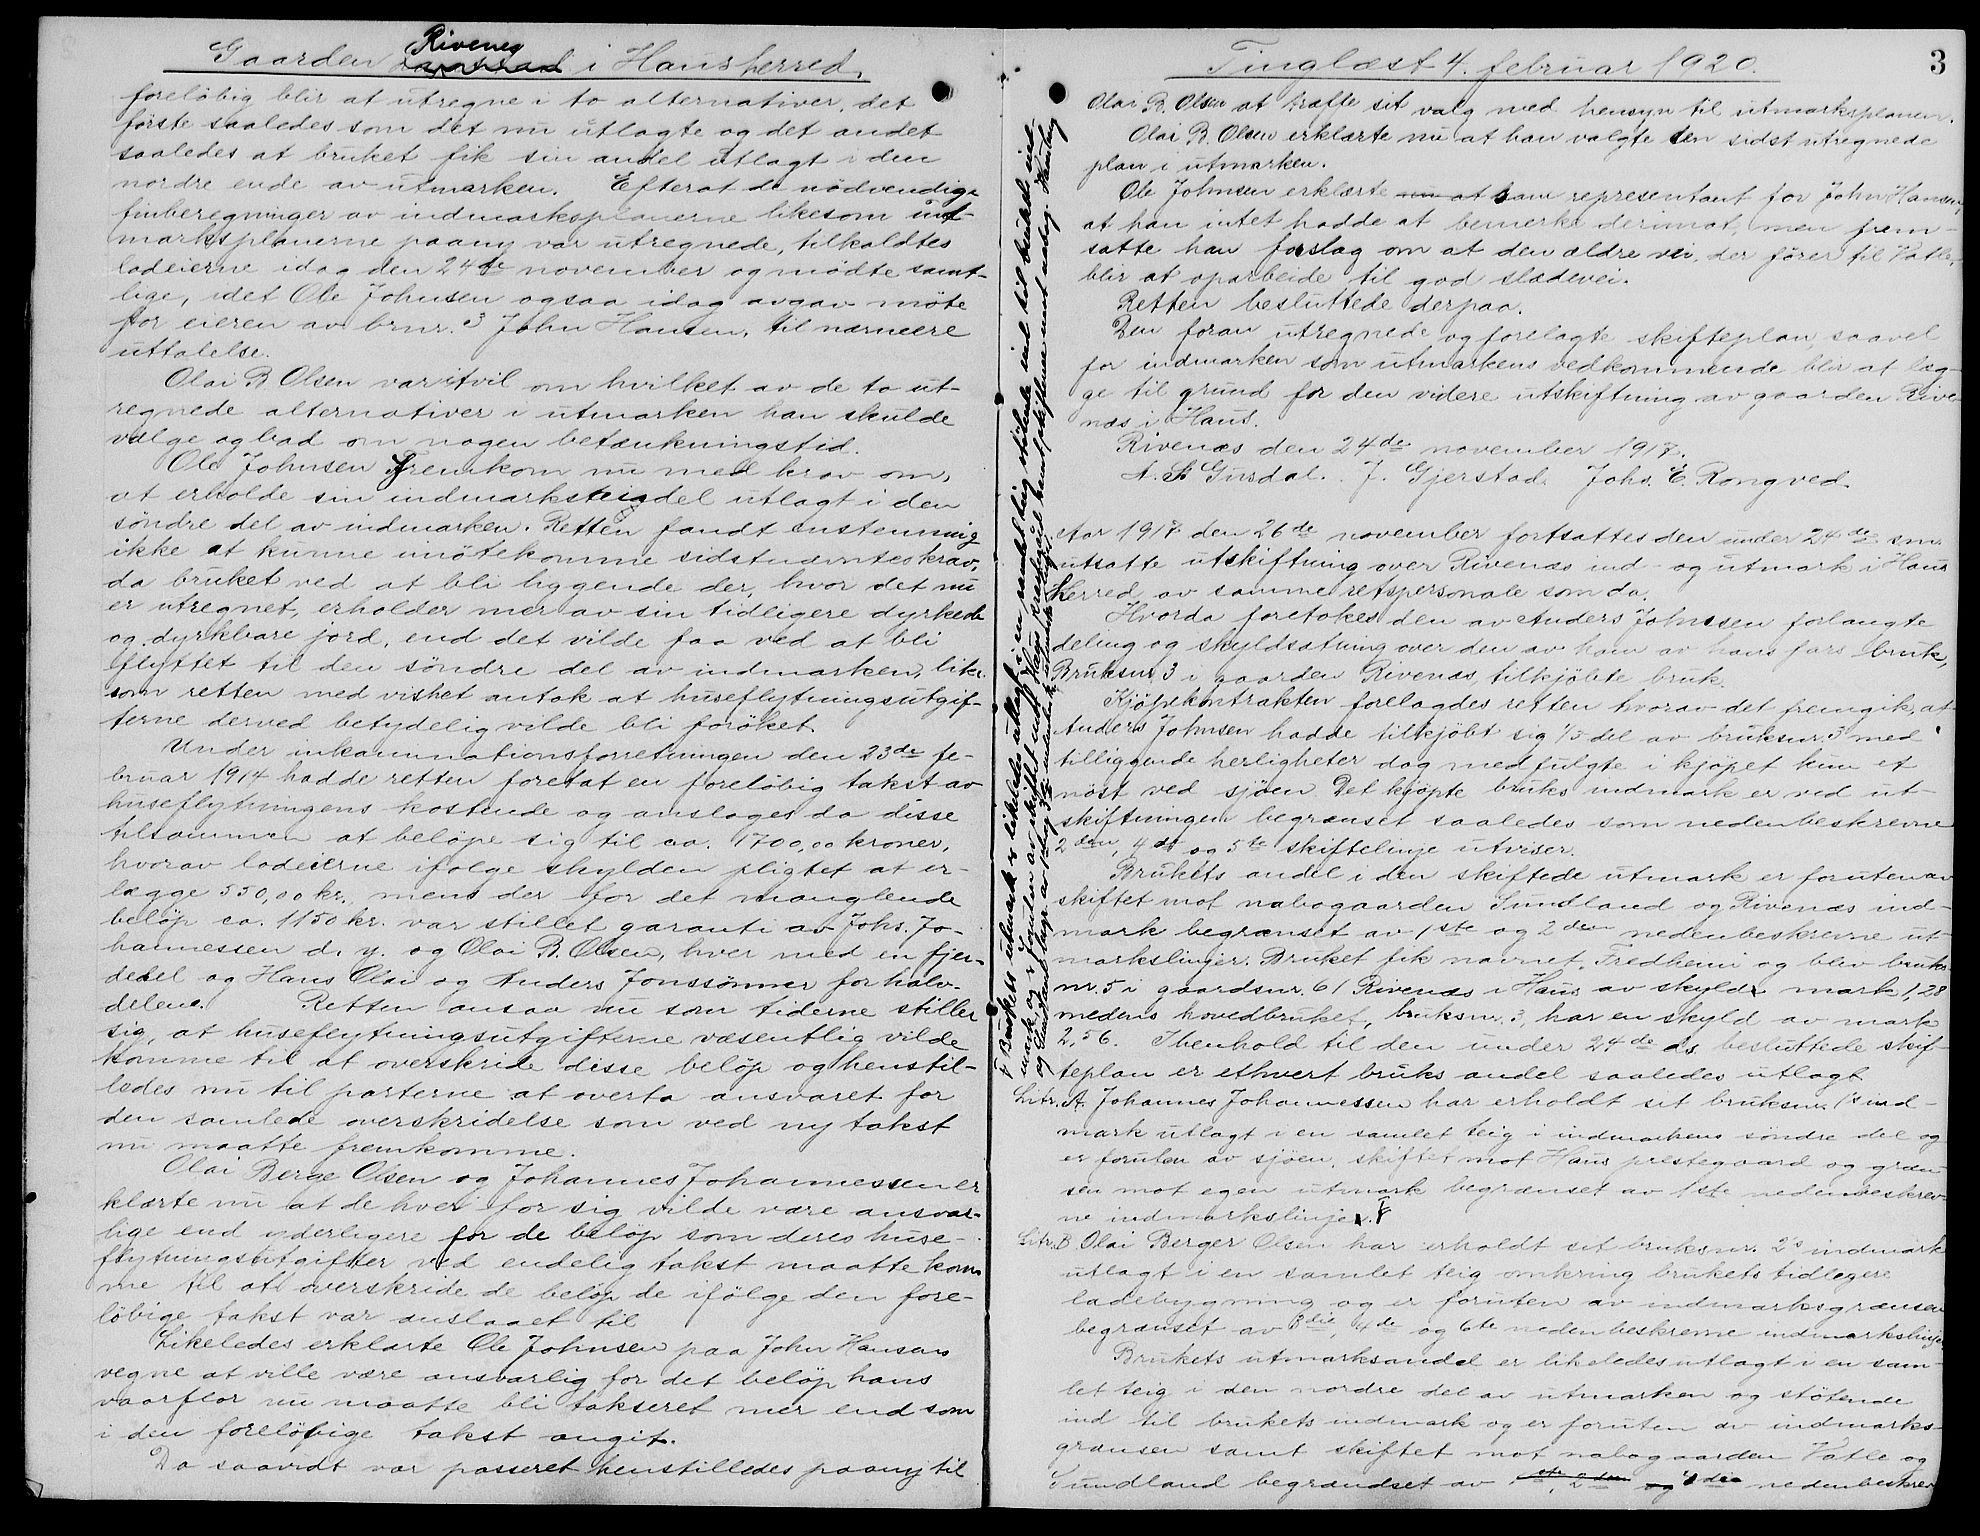 Gaarden Rivenes i Haus herred.
foreløbig blir at utregne i to alternativer, det
første saaledes som det nu utlagte og det andet
saaledes at bruket fik sin andel utlagt i den
nordre ende av utmarken. Efterat de nødvendige
finberegninger av indmarksplanerne likesom ut-
marksplanerne paany var utregnede, tilkaldtes
lodeierne idag den 24de november og mødte samt-
lige, idet Ole Johnsen ogsaa idag avgav møte
for eieren av brnr. 3 John Hansen, til nærmere
uttalelse.
Olai B Olsen var itvil om hvilket av de to ut-
regnede alternativer i utmarken han skulde
vælge og bad om nogen betænkningstid.
Ole Johnsen fremkom nu med krav om,
at erholde sin indmarksteigdel utlagt i den
søndre del av indmarken. Retten fandt enstemmig
ikke at kunne imøtekomme sidstnævntes krav,
da bruket ved at bli liggende der, hvor det nu
er utregnet, erholder mer av sin tidligere dyrkede
og dyrkbare jord, end det vilde faa ved at bli
flyttet til den søndre del av indmarken, like-
som retten med vishet antok at huseflytningsutgif-
terne derved betydelig vilde bli forøket.
Under inkaminationsforretningen den 23de fe-
bruar 1914 hadde retten foretat en foreløbig takst av
huseflytningens kostende og ansloges da disse
tilsammen at beløpe sig til ca. 1700,00 kroner,
hvorav lodeierne ifølge skylden pligtet at er-
lægge 550,00 kr., mens der for det manglende
beløp ca. 1150 kr. var stillet garanti av Johs. Jo-
hannessen d. y. og Olai B. Olsen, hver med en fjer-
dedel og Hans Olai og Anders Jonssønner for halv-
delen. Retten ansaa nu som tiderne stiller
sig, at huseflytningsutgifterne væsentlig vilde
komme til at overskride disse beløp og henstil-
ledes nu til parterne at overta ansvaret for
den samlede overskridelse som ved ny takst
nu maatte fremkomme.
Olai Berge Olsen og Johannes Johannessen er
klærte nu at de hver for sig vilde være ansvar-
lige end yderligere for de beløp som deres huse-
flytningsutgifter ved endelig takst maatte kom
me til at overskride de beløp de ifølge den fore-
løbige takst var anslaaet til
Likeledes erklærte Ole Johnsen paa John Hansens
vegne at ville være ansvarlig for det beløp hans
vaarflor nu maatte bli takseret mer end som
i den foreløbige takst angit.
Da saavidt var passeret henstilledes paany til
Tinglæst 4. februar 1920.
3
Olai B. Olsen at træffe sit valg med hensyn til utmarksplanen.
Olai B. Olsen erklærte nu at han valgte den sidst utregnede
plan i utmarken.
Ole Johnsen erklærte nu at som representant for John Hansen,
at han intet hadde at bemerke derimot, men frem-
satte han forslag om at den ældre vei, der fører til Vatle,
blir at oparbeide til god slædevei.
Retten besluttede derpaa.
Den foran utregnede og forelagte skifteplan saavel
for indmarken som utmarkens vedkommende blir at læg-
ge til grund for den videre utskiftning av gaarden Rive-
næs i Haus.
Rivenæs den 24de november 1917.
J. Gjerstad. Johs. E. Rongved.
Aar 1917 den 26de november fortsattes den under 24de sm.
utsatte utskiftning over Rivenæs ind- og utmark i Haus
herred av samme retspersonale som da.
Hvorda foretokes den av Anders Johnsen forlangte
deling og skyldsætning over den av ham av hans fars bruk,
Bruksnr 3 i gaarden Rivenæs tilkjøbte bruk.
Kjøpekontrakten forelagdes retten hvorav det fremgik, at
Anders Johnsen hadde tilkjøbt sig 1/3 del av bruksnr. 3 med
tilliggende herligheter dog medfulgte i kjøpet kun et
nøst ved sjøen. Det kjøpte bruks indmark er ved ut-
skiftningen begrænset saaledes som nedenbeskrevne
2den, 4de og 5te skiftelinje utviser.
Brukets andel i den skiftede utmark er foruten av
skiftet mot nabogaarden Sundland og Rivenæs ind-
mark begrænset av 1ste og 2den nedenbeskrevne ut-
markslinjer. Bruket fik navnet Fredheim og blev bruks
nr. 5 i gaardsnr. 61 Rivenæs i Haus av skyld mark 1,28
medens hovedbruket, bruksnr. 3, har en skyld av mark
2,56. I henhold til den under 24de ds. besluttede skif-
teplan er ethvert bruks andel saaledes utlagt
Litr. A. Johannes Johannessen har erholdt sit bruksnr. 1s ind-
mark utlagt i en samlet teig i indmarkens søndre del og
er foruten av sjøen, skiftet mot Haus prestegaard og græn-
sen mot egen utmark begrænset av 1ste nedenbeskrev-
ne indmarkslinje.
Litr. B. Olai Berger Olsen har erholdt sit bruksnr. 2s indmark
utlagt i en samlet teig omkring brukets tidligere
ladebygning og er foruten av indmarksgrænsen
begrænset av 3die, 4de og 6te nedenbeskrevne indmarkslinjer
Brukets utmarksandel er likeledes utlagt i en sam-
let teig i den nordre del av utmarken og støtende
ind til brukets indmark og er foruten av indmarks-
grænsen samt skiftet mot nabogaarden Vatle og
Sundland begrændset av 1ste, 2den og 4de nedenbeskrev
Brukets utmark er likeledes utlagt i en samlet teig støtende ind til brukets ind-
mark og er foruten av skiftet mot Haus prestegaard
og Sundland begr. av 1ste og 3die